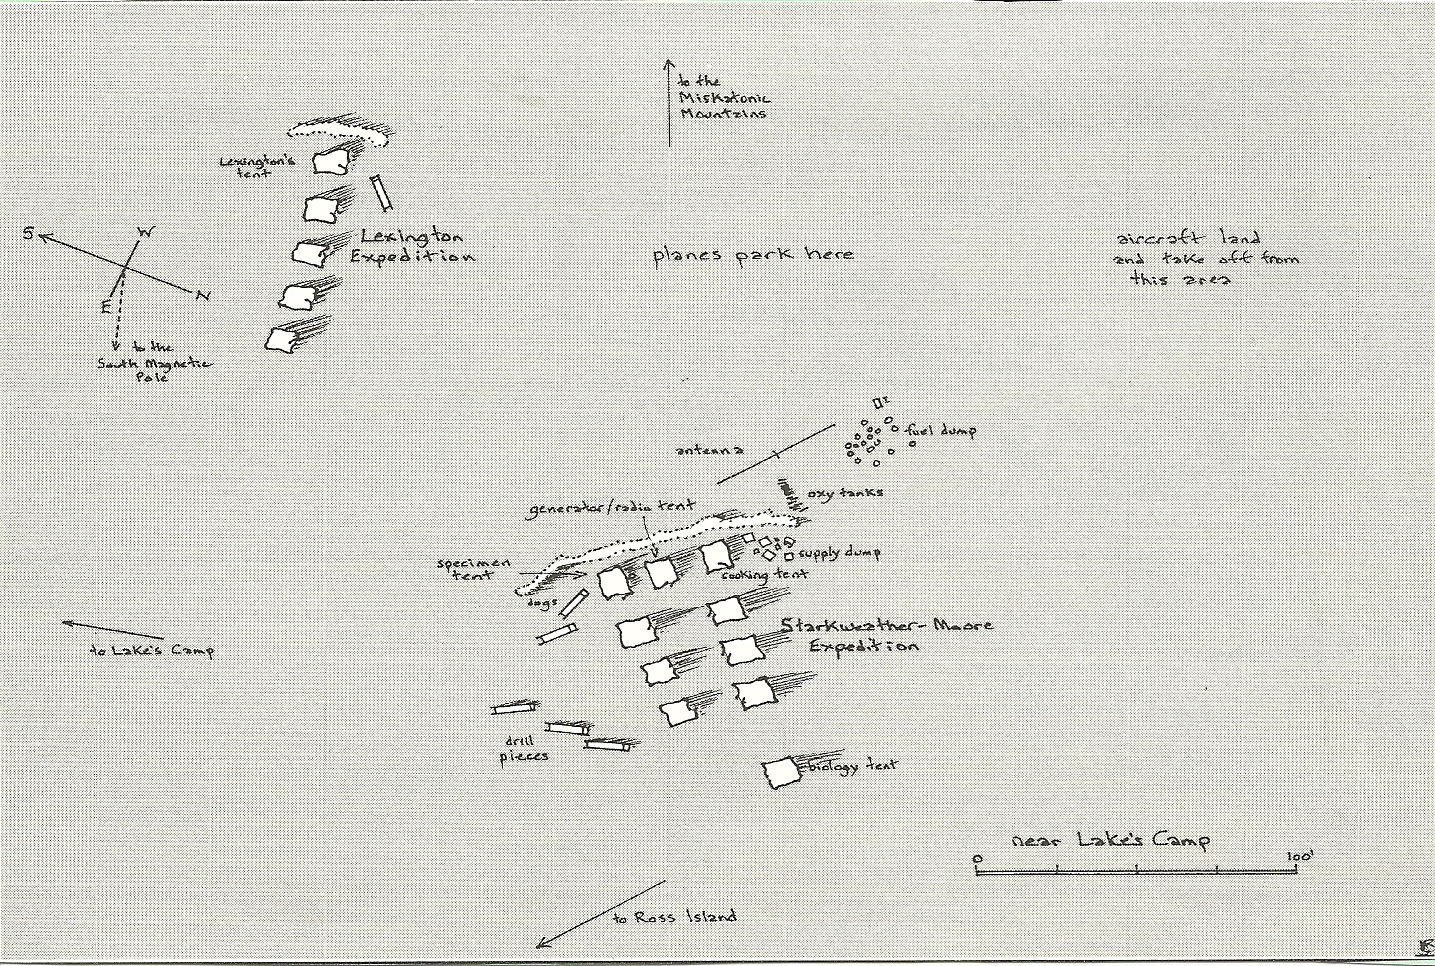 to the
Miskatonic
Mountains
Lexington's
tent
Lexington
Expedition
S
W
E
N
to the
South Magnetic
Pole
planes park here
aircraft land
and take off from
this area
antenna
fuel dump
oxy tanks
generator/radio tent
specimen
tent
supply dump
cooking tent
dogs
Starkweather-Moore
Expedition
to Lake's Camp
drill
pieces
biology tent
near Lake's Camp
0
100'
to Ross Island